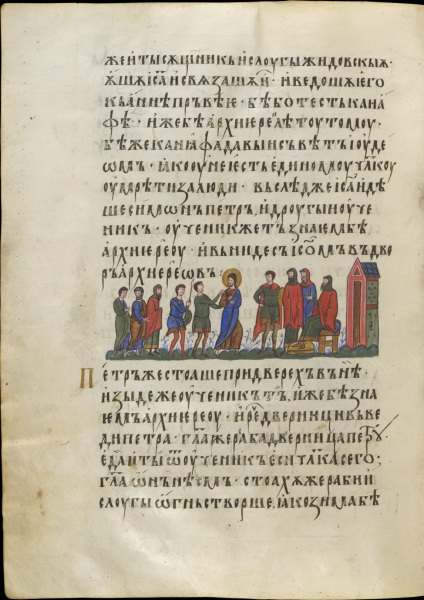 жеи тысѧщникь и слоугы жидовскыѧ·
ѧшѧ іс҃а и свѧзашѧ и· и ведошѧ его
къ аннѣ пръвѣе· бѣ бо тесть каиа
фѣ· иже бѣ архиереи лѣтоу томоу·
бѣ же каиафа давыи съвѣтъ іоуде
ѡмъ· ꙗко оуне есть единомоу чл҃коу
оумрѣти за люди· въслѣд же іс҃а идѣ
ше симѡнъ петръ, и дроугыи оуче
никъ· оученик же тъ знаемь бѣ
архиереоу· и вьниде съ іс҃омъ въ дво
ръ архиереѡвъ:
Петръ же стоаше при дверехъ вънѣ·
изыде же оученикъ тъ, иже бѣ зна
емъ архиереоу· и рече дверници въве
ди петра· гл҃а же раба дверница петроу
еда и ты ѿ оученикъ еси чл҃ка сего;
гл҃а ѡнъ нѣсмъ· стоахѫ же раби и
слоугы ѡгнь створше, ꙗко зима бѣ